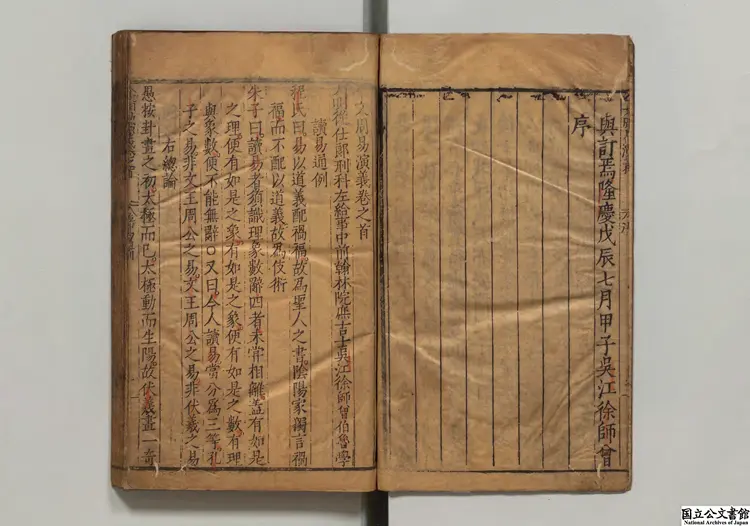 與訂焉隆慶戊辰七月甲子吳江徐師曾
序
今文周易演義卷之首
徵仕郎刑科左給事中前翰林院庶吉士吳江徐師曾伯魯學
讀易通例
程氏曰易以道義配禍福故為聖人之書陰陽家獨言禍
福而不配以道義故為伎術
朱子曰讀易者須識理象數辭四者未嘗相離蓋有如是
之理便有如是之象有如是之象便有如是之數有理
與象數便不能無辭○又曰今人讀易當分為三等孔
子之易非文王周公之易文王周公之易非伏羲之易
右總論
愚按卦畫之初太極而已太極動而生陽故伏羲畫一奇
国立公文書館
National Archives of Japan